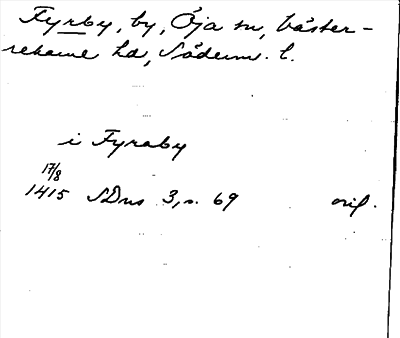 Fyrby, by, Öja sn, Väster-
rekarne hd, Söderm. l.
i Fyraby
17/8
1415 SDns 3, s. 69 orig.